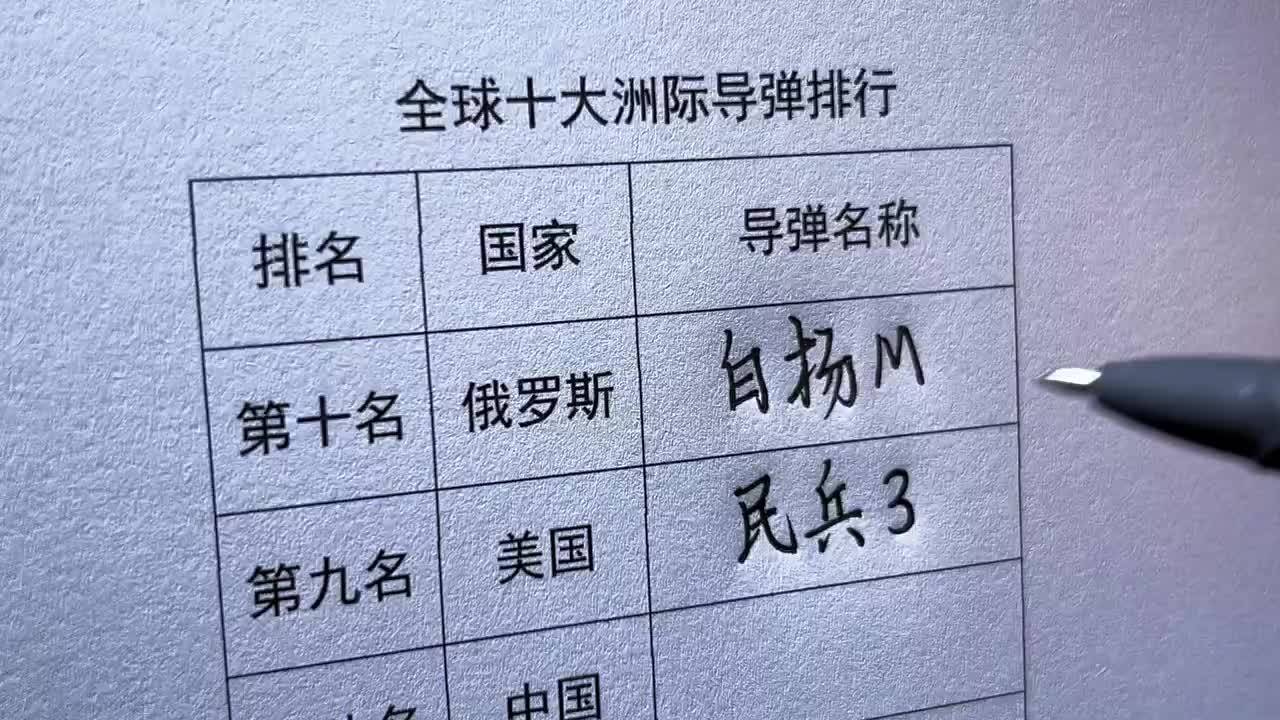 全球十大洲际导弹排行
排名 国家 导弹名称
第十名 俄罗斯 白扬M
第九名 美国 民兵3
名 中国